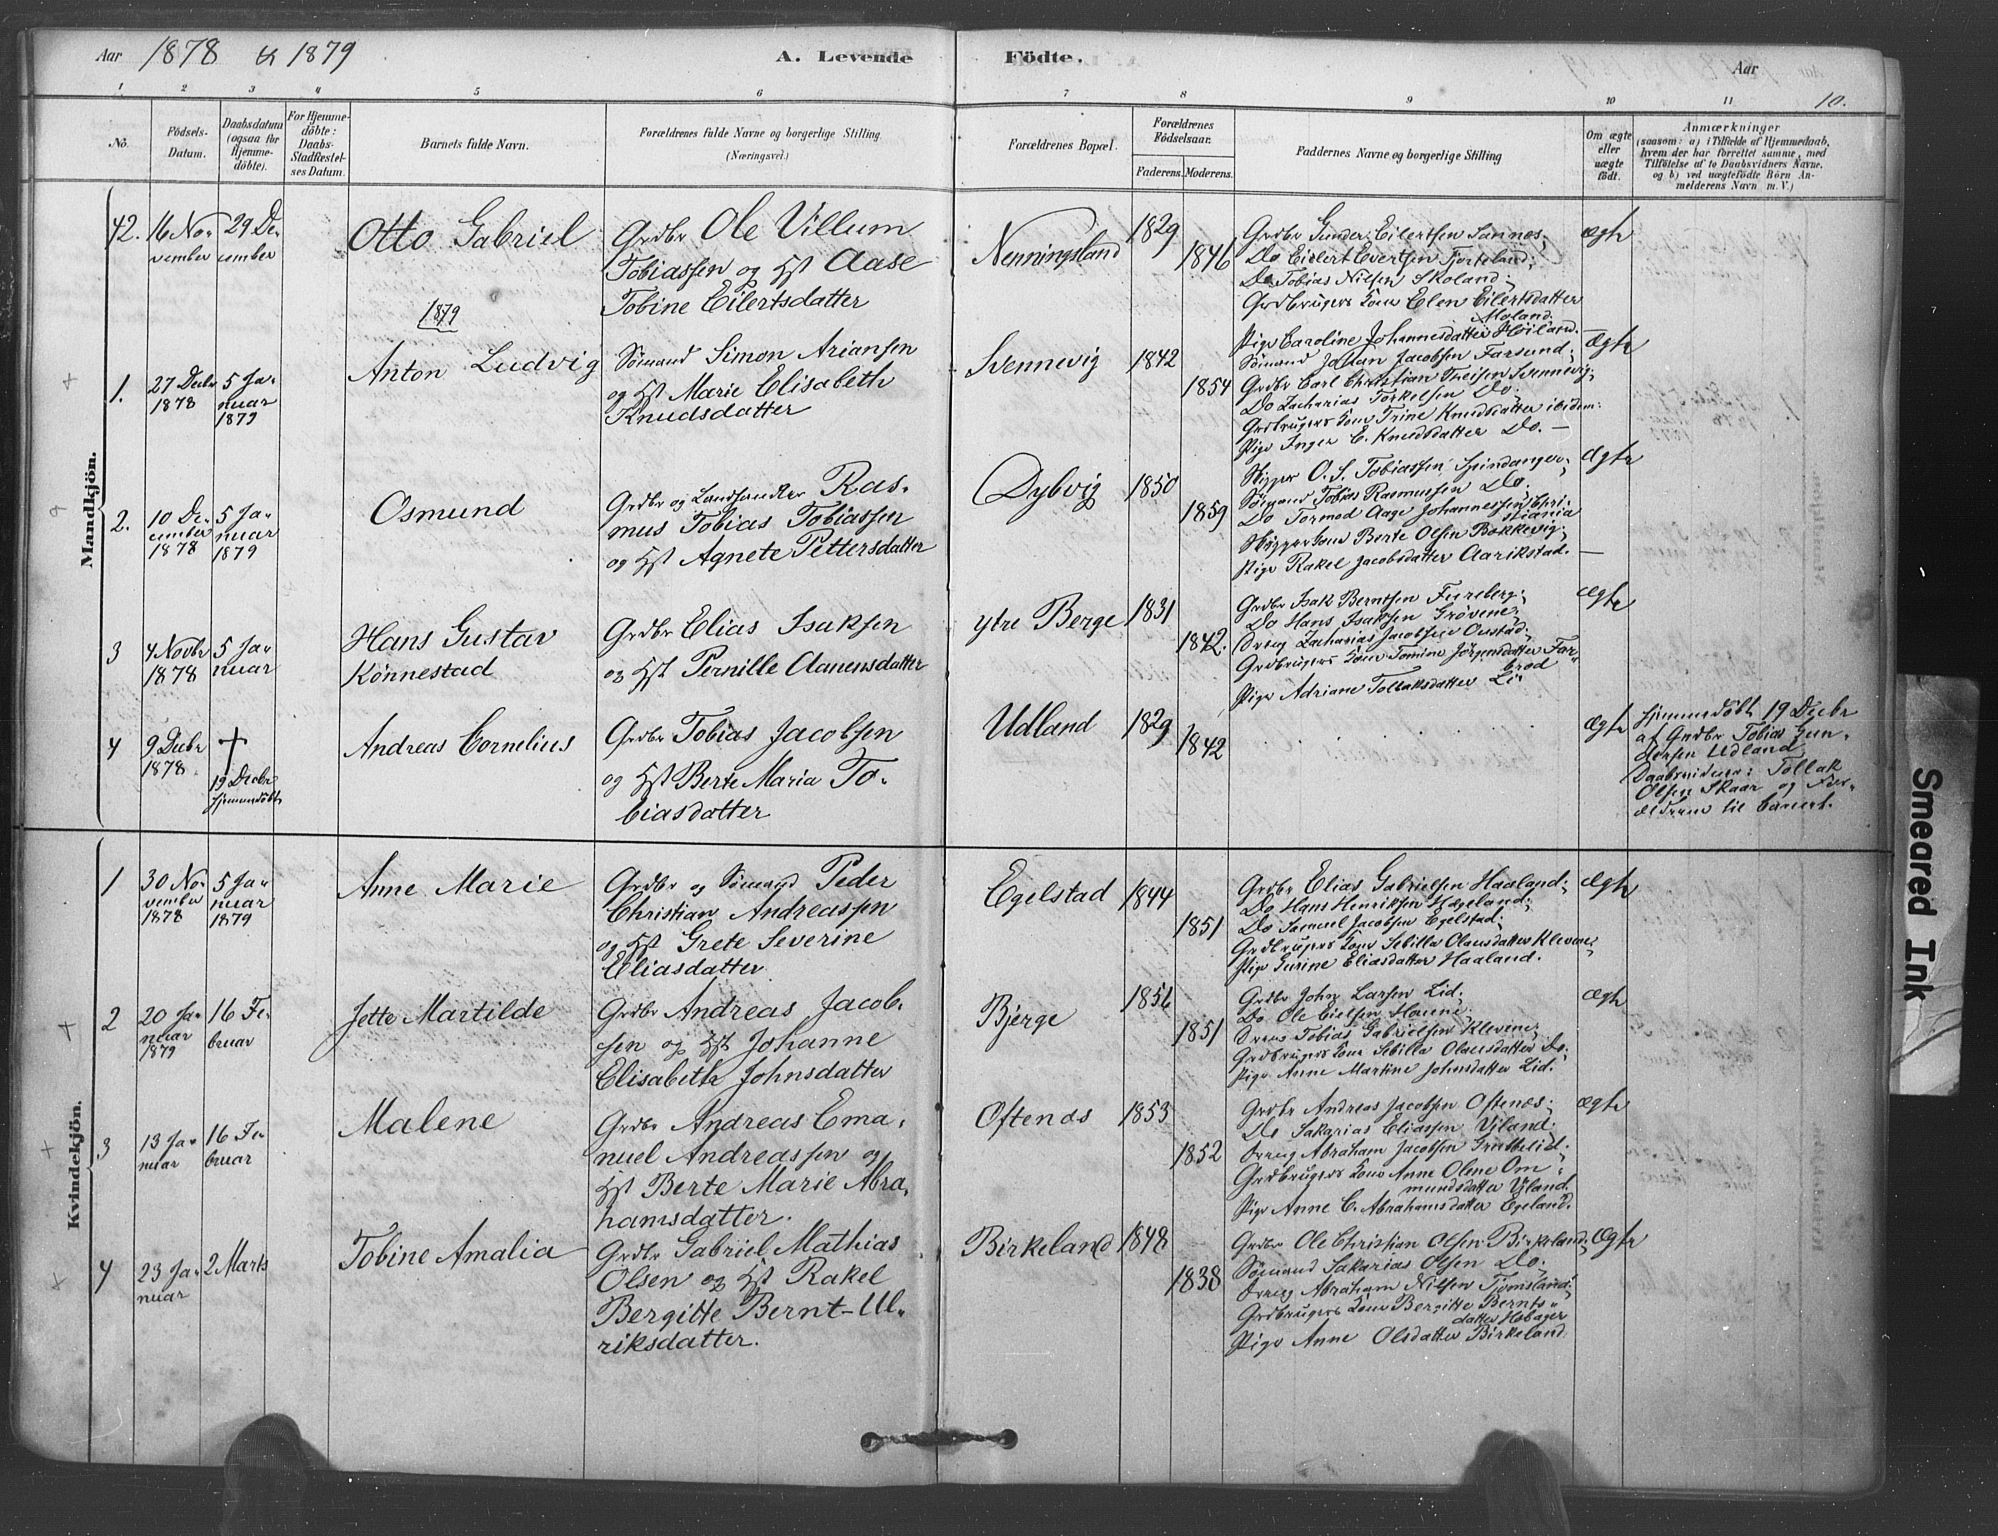 Aar 1878 & 1879
A. Levende
Födte.
Aar
10.
1 2 3 4 5 6 7 8 9 10 11
No.
Födsels-
Datum.
Daabsdatum
(ogsaa for
Hjemme-
döbte).
For Hjemme-
döbte:
Daabs-
Stadfæstel-
ses Datum.
Barnets fulde Navn.
Forældrenes fulde Navne og borgerlige Stilling.
(Næringsvei.)
Forældrenes Bopæl.
Forældrenes
Födselsaar.
Faderens. Moderens.
Faddernes Navne og borgerlige Stilling
Om ægte
eller
uægte
födt.
Anmærkninger
(saasom: a) i Tilfælde af Hjemmedaab,
hvem der har forrettet samme, med
Tilföielse af to Daabsvidners Navne,
og b) ved uægtefödte Börn An-
melderens Navn m. V.)
Mandkjön.
42.
16 No-
vember
29 De-
cember
Otto Gabriel
Grdbr Ole Villum
Tobiassen og Hst Aase
Tobine Eilertsdatter
Nenningsland
1829
1846
Grdbr Gunder Eilertsen Sannes;
Do Eilert Evertsen Fjorteland;
Do Tobias Nilsen Skoland;
Grdbrugers Kone Elen Eilertsdatter
Moland.
Pige Caroline Johannesdatter Höiland.
ægte
1879
1.
27 Decbr
1878
5 Ja-
nuar
1879
Anton Ludvig
Sömand Simon Ariansen
og Hst Marie Elisabeth
Knudsdatter
Svennevig
1842
1854
Sömand Johan Jacobsen Farsund;
Grdbr Carl Christian Theisen Svennevig;
Do Zacharias Torkelsen Do;
Grdbrugers Kone Trine Knudsdatter ibidem;
Pige Inger E. Knudsdatter Do. —
Ægte
2.
10 De-
cember
1878
5 Ja-
nuar
1879
Osmund
Grdbr og Landhandler Ras-
mus Tobias Tobiassen
og Hst Agnete Pettersdatter
Dybvig
1850
1859
Skipper O. S. Tobiassen Spindanger;
Sömand Tobias Rasmussen Do.
Do Tormod Aage Johannessen Chri-
stiania
Skippers Kone Berte Olsen Bakkevig;
Pige Rakel Jacobsdatter Aarikstad. —
Ægte
3
4 Novbr
1878
5 Ja-
nuar
Hans Gustav
Könnestad
Grdbr Elias Isaksen
og Hst Pernille Aanensdatter
ytre Berge
1831
1842.
Grdbr Isak Berntsen Fureberg;
Do Hans Isaksen Grövene;
Dreng Zacharias Jacobsen Oustad;
Grdbrugers Kone Tomine Jörgensdatter Far-
brod
Pige Adriane Tollaksdatter Li
Ægte
4
9 Decbr
1878
†
19 Decbr
hjemmedöbt
Andreas Cornelius
Grdbr Tobias Jacobsen
og Hst Berte Maria To-
biasdatter
Udland
1829
1842
Ægte
Hjemmedöbt 19 Decbr
af Grdbr Tobias Gun-
dersen Udland
Daabsvidner: Tollak
Olsen Skaar og For-
ældrene til barnet.
Kvindekjön.
1
30 No-
vember
1878
5 Ja-
nuar
1879
Anne Marie
Grdbr og Sömand Peder
Christian Andreassen
og Hst Grete Severine
Eliasdatter
Egelstad
1844
1851
Grdbr Elias Gabrielsen Haaland;
Do Hans Henriksen Hageland;
Do Samuel Jacobsen Egelstad;
Grdbrugers Kone Sibilla Olausdatter Klevene;
Pige Gurine Eliasdatter Haaland.
Ægte
2
20 Ja-
nuar
1879
16 Fe-
bruar
Jette Martilde
Grdbr Andreas Jacob-
sen og Hst Johanne
Elisabeth Johnsdatter
Bjerge
1856
1851
Grdbr John Larsen Lid;
Do Ole Eielsen Hauene;
Dreng Tobias Gabrielsen Klevene;
Grdbrugers Kone Sibilla Olausdatter Do;
Pige Anne Martine Johnsdatter Lid.
Ægte
3
13 Ja-
nuar
16 Fe-
bruar
Malene
Grdbr Andreas Ema-
nuel Andreassen og
Hst Berte Marie Abra-
hamsdatter.
Oftenæs
1853
1852
Grdbr Andreas Jacobsen Oftenæs;
Do Sakarias Eliassen Viland;
Dreng Abraham Jacobsen Grubbelid;
Grdbrugers Kone Anne Olene Om-
mundsdatter Viland.
Pige Anne C. Abrahamsdatter Egeland.
Ægte
4
23 Ja-
nuar
2 Marts
Tobine Amalia
Grdbr Gabriel Mathias
Olsen og Hst Rakel
Bergitte Bernt-Ul-
riksdatter.
Birkeland
1848
1838
Grdbr Ole Christian Olsen Birkeland;
Sömand Sakarias Olsen Do.
Dreng Abraham Nilsen Tjomsland;
Grdbrugers Kone Bergitte Bernts-
datter Hobager
Pige Anne Olsdatter Birkeland
Ægte
Smeared Ink